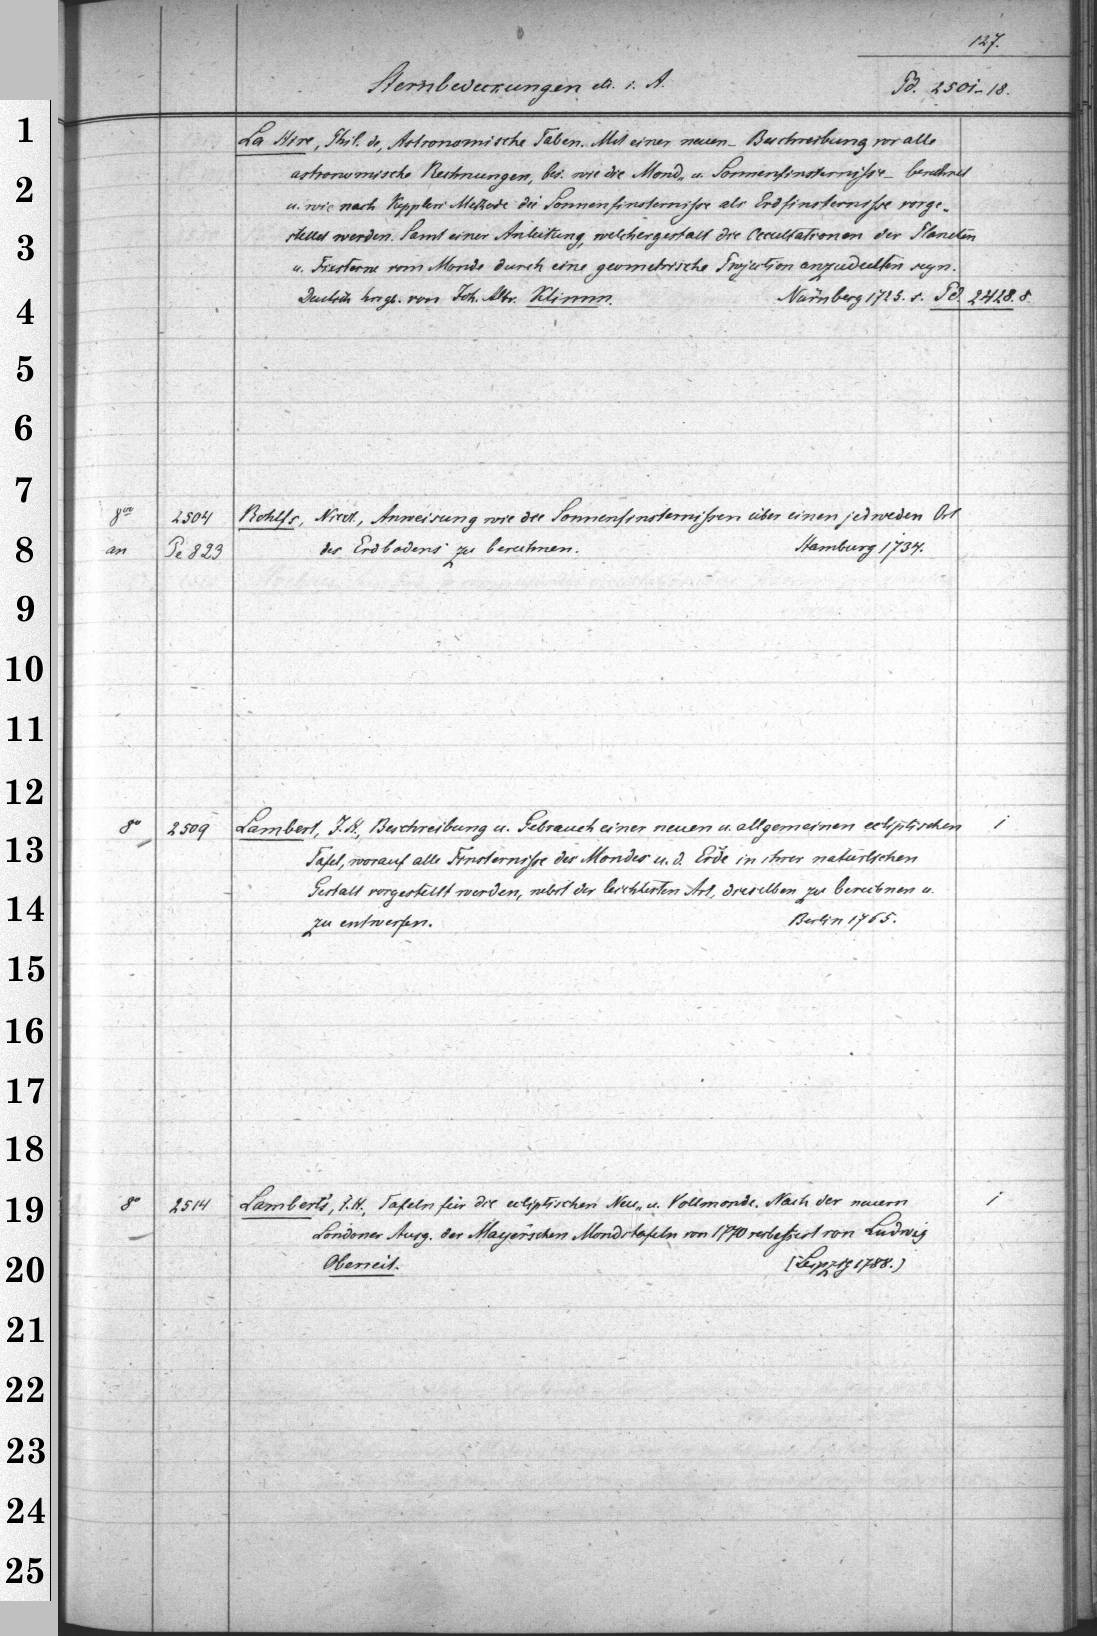 127.
Sternbedeckungen etc. i. A. Pd. 2501-18.
1 La Hire, Phil. de, Astronomische Tabeln. Mit einer neuen Beschreibung vor alle
2 astronomische Rechnungen, bes. wie die Mond- u. Sonnenfinsternisse berechnet
u. wie nach Keppleri Methode die Sonnenfinsternisse als Erdfinsternisse vorge-
3 stellet werden. Samt einer Anleitung, welchergestalt die Occultationen der Planeten
u. Fixsterne vom Monde durch eine geometrische Projection anzudeuten seyn.
4 Deutsch hrsgb. von Joh. Albr. Klimm. Nürnberg 1725. s. Pd. 2428. 8
5
6
7
8vo 2504 Rohlfs, Nicol., Anweisung wie die Sonnenfinsternissen über einen jedweden Ort
8 an Pe 823 des Erdbodens zu berechnen. Hamburg 1734.
9
10
11
12
8o 2509 Lambert, J. H., Beschreibung u. Gebrauch einer neuen u. allgemeinen ecliptischen 1
13 Tafel, worauf alle Finsternisse des Mondes u. d. Erde in ihrer natürlichen
14 Gestalt vorgestellt werden, nebst der leichtesten Art, dieselben zu berechnen u.
zu entwerfen. Berlin 1765.
15
16
17
18
19 8o 2514 Lambert's, J. H., Tafeln für die ecliptischen Neu- u. Vollmonde. Nach der neuern 1
Londoner Ausg. der Mayer'schen Mondstafeln von 1770 verbessert von Ludwig
20 Oberreit. [Leipzig 1788.]
21
22
23
24
25